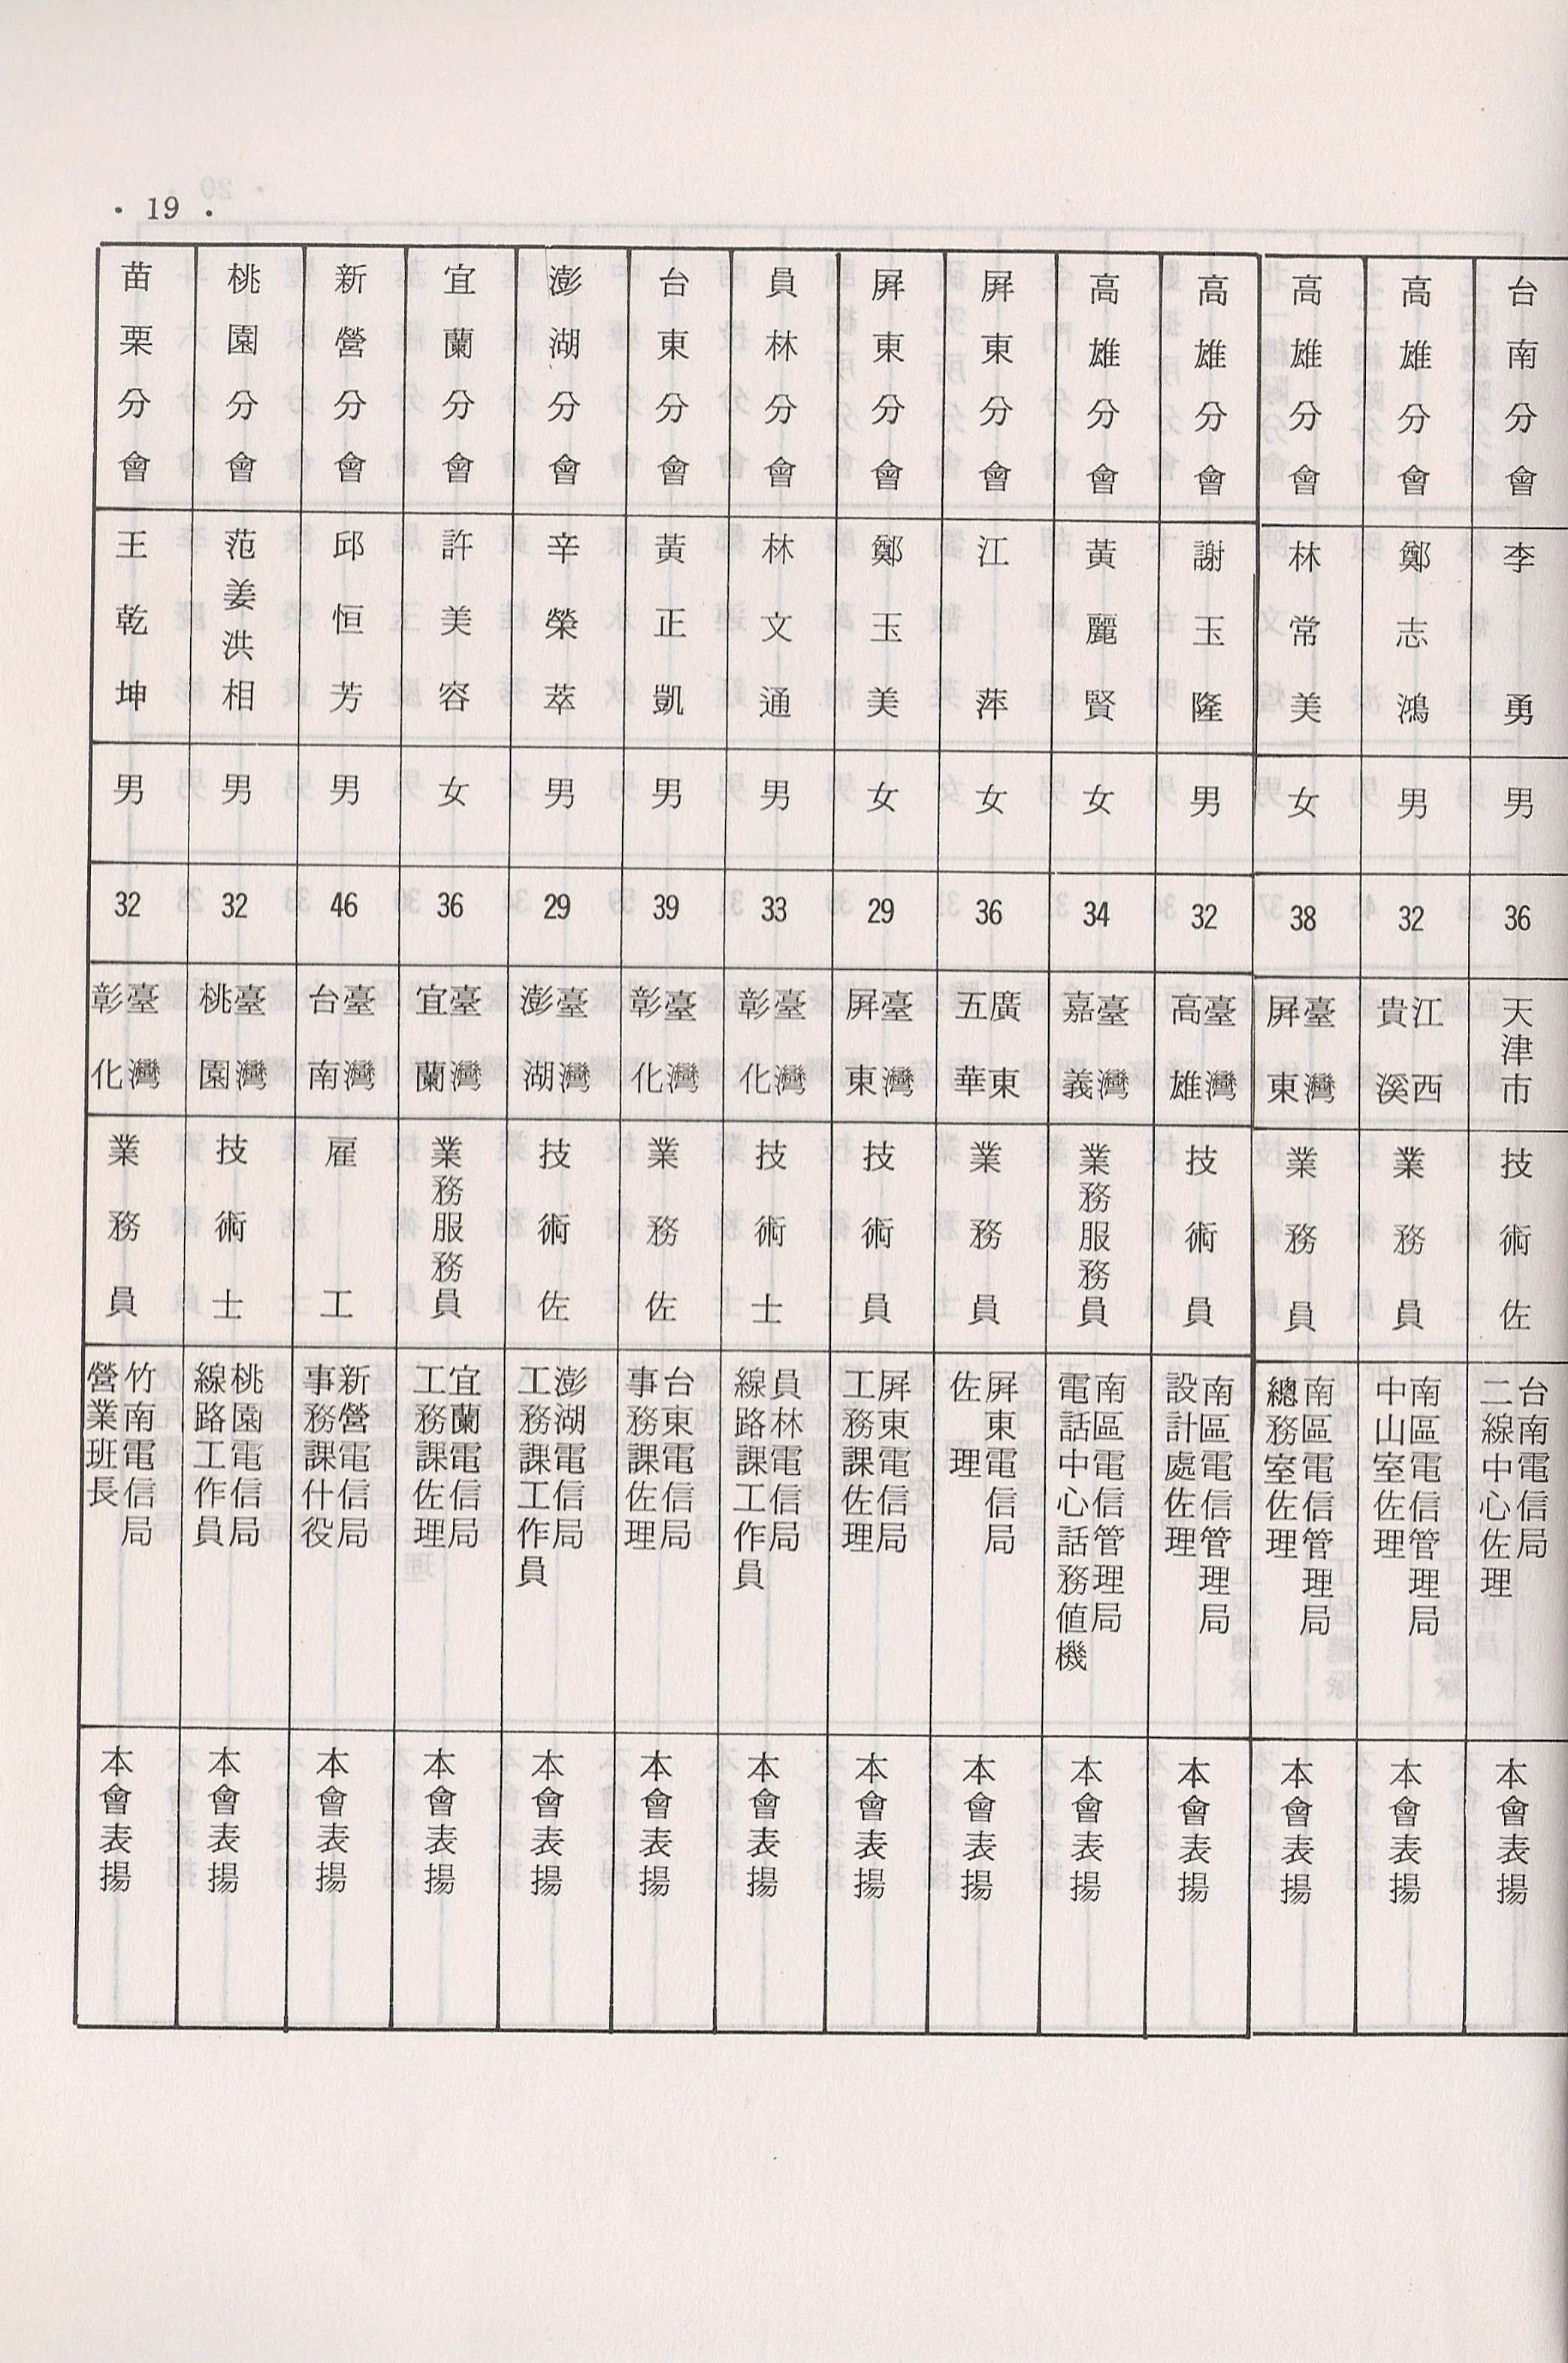 · 19 ·
台南分會 李勇 男 36 天津市 技術佐 台南電信局二線中心佐理 本會表揚
高雄分會 鄭志鴻 男 32 江西貴溪 業務員 南區電信管理局中山室佐理 本會表揚
高雄分會 林常美 女 38 臺灣屏東 業務員 南區電信管理局總務室佐理 本會表揚
高雄分會 謝玉隆 男 32 臺灣高雄 技術員 南區電信管理局設計處佐理 本會表揚
高雄分會 黃麗賢 女 34 臺灣嘉義 業務服務員 南區電信管理局電話中心話務值機 本會表揚
屏東分會 江萍 女 36 廣東五華 業務員 屏東電信局佐理 本會表揚
屏東分會 鄭玉美 女 29 臺灣屏東 技術員 屏東電信局工務課佐理 本會表揚
員林分會 林文通 男 33 臺灣彰化 技術士 員林電信局線路課工作員 本會表揚
台東分會 黃正凱 男 39 臺灣彰化 業務佐 台東電信局事務課佐理 本會表揚
澎湖分會 辛榮萃 男 29 臺灣澎湖 技術佐 澎湖電信局工務課工作員 本會表揚
宜蘭分會 許美容 女 36 臺灣宜蘭 業務服務員 宜蘭電信局工務課佐理 本會表揚
新營分會 邱恒芳 男 46 臺灣台南 雇工 新營電信局事務課什役 本會表揚
桃園分會 范姜洪相 男 32 臺灣桃園 技術士 桃園電信局線路工作員 本會表揚
苗栗分會 王乾坤 男 32 臺灣彰化 業務員 竹南電信局營業班長 本會表揚